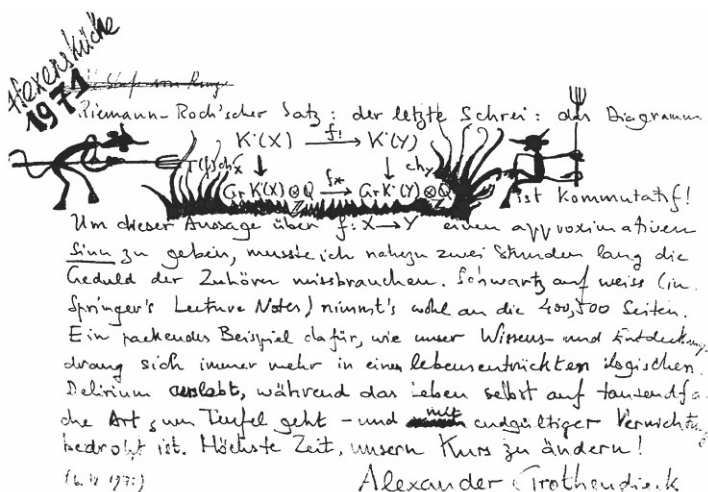 Hexenküche
1971
Riemann-Roch'scher Satz: der letzte Schrei: das Diagramm
K˙(X) f! K˙(Y)
T(f)ch_X ch_Y
Gr K˙(X)⊗Q f* Gr K˙(Y)⊗Q
Z Z
ist kommutatif!
Um dieser Aussage über f: X→Y einen approximativen
Sinn zu geben, musste ich nahezu zwei Stunden lang die
Geduld der Zuhörer missbrauchen. Schwartz auf weiss (in
Springer's Lecture Notes) nimmt's wohl an die 400, 500 Seiten.
Ein packendes Beispiel dafür, wie unser Wissens- und Entdeckungs
drang sich immer mehr in einem lebensentrückten logischen
Delirium auslebt, während das Leben selbst auf tausendfa
che Art zum Teufel geht - und mit endgültiger Vernichtung
bedroht ist. Höchste Zeit, unsern Kurs zu ändern!
Alexander Grothendieck